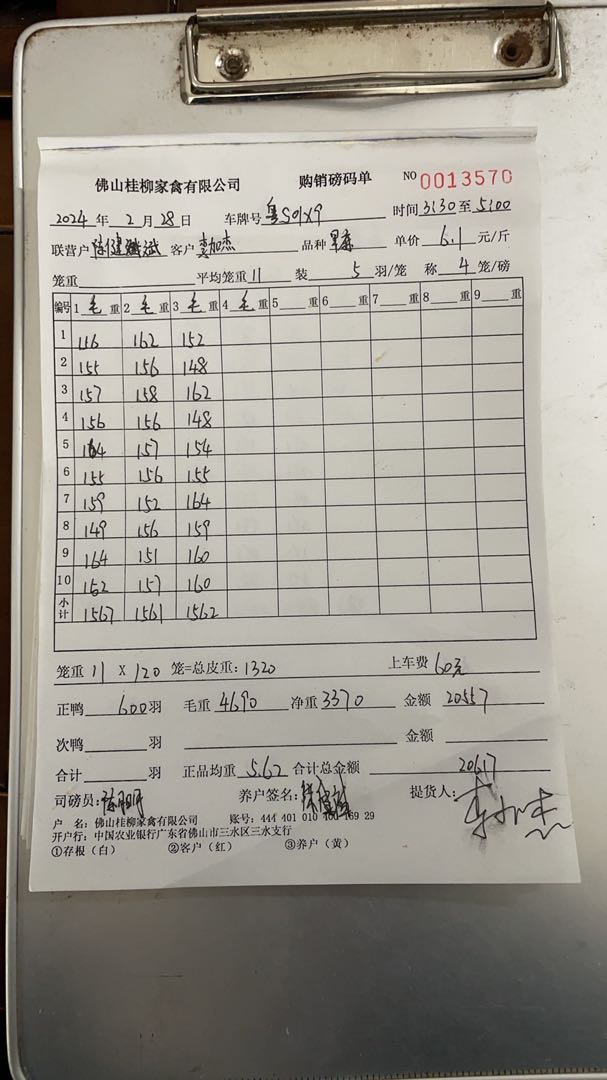 佛山桂柳家禽有限公司 购销磅码单 NO 0013570
2024 年 2 月 28 日 车牌号 粤S01X9 时间 3:30 至 5:00
联营户 客户 李加杰 品种 单价 6.1 元/斤
笼重 平均笼重 11 装 5 羽/笼 称 4 笼/磅
编号 1 毛 重 2 毛 重 3 毛 重 4 毛 重 5 重 6 重 7 重 8 重 9 重
1 146 162 152
2 155 156 148
3 157 158 162
4 156 156 148
5 164 157 154
6 155 156 155
7 159 152 164
8 149 156 159
9 164 151 160
10 162 157 160
小计 1567 1561 1562
笼重 11 X 120 笼=总皮重: 1320 上车费 60元
正鸭 600 羽 毛重 4690 净重 3370 金额 20557
次鸭 羽 金额
合计 羽 正品均重 5.62 合计总金额 20617
司磅员: 养户签名: 提货人: 李加杰
户 名: 佛山桂柳家禽有限公司 账号: 444 401 010 169 29
开户行: 中国农业银行广东省佛山市三水区三水支行
①存根（白） ②客户（红） ③养户（黄）